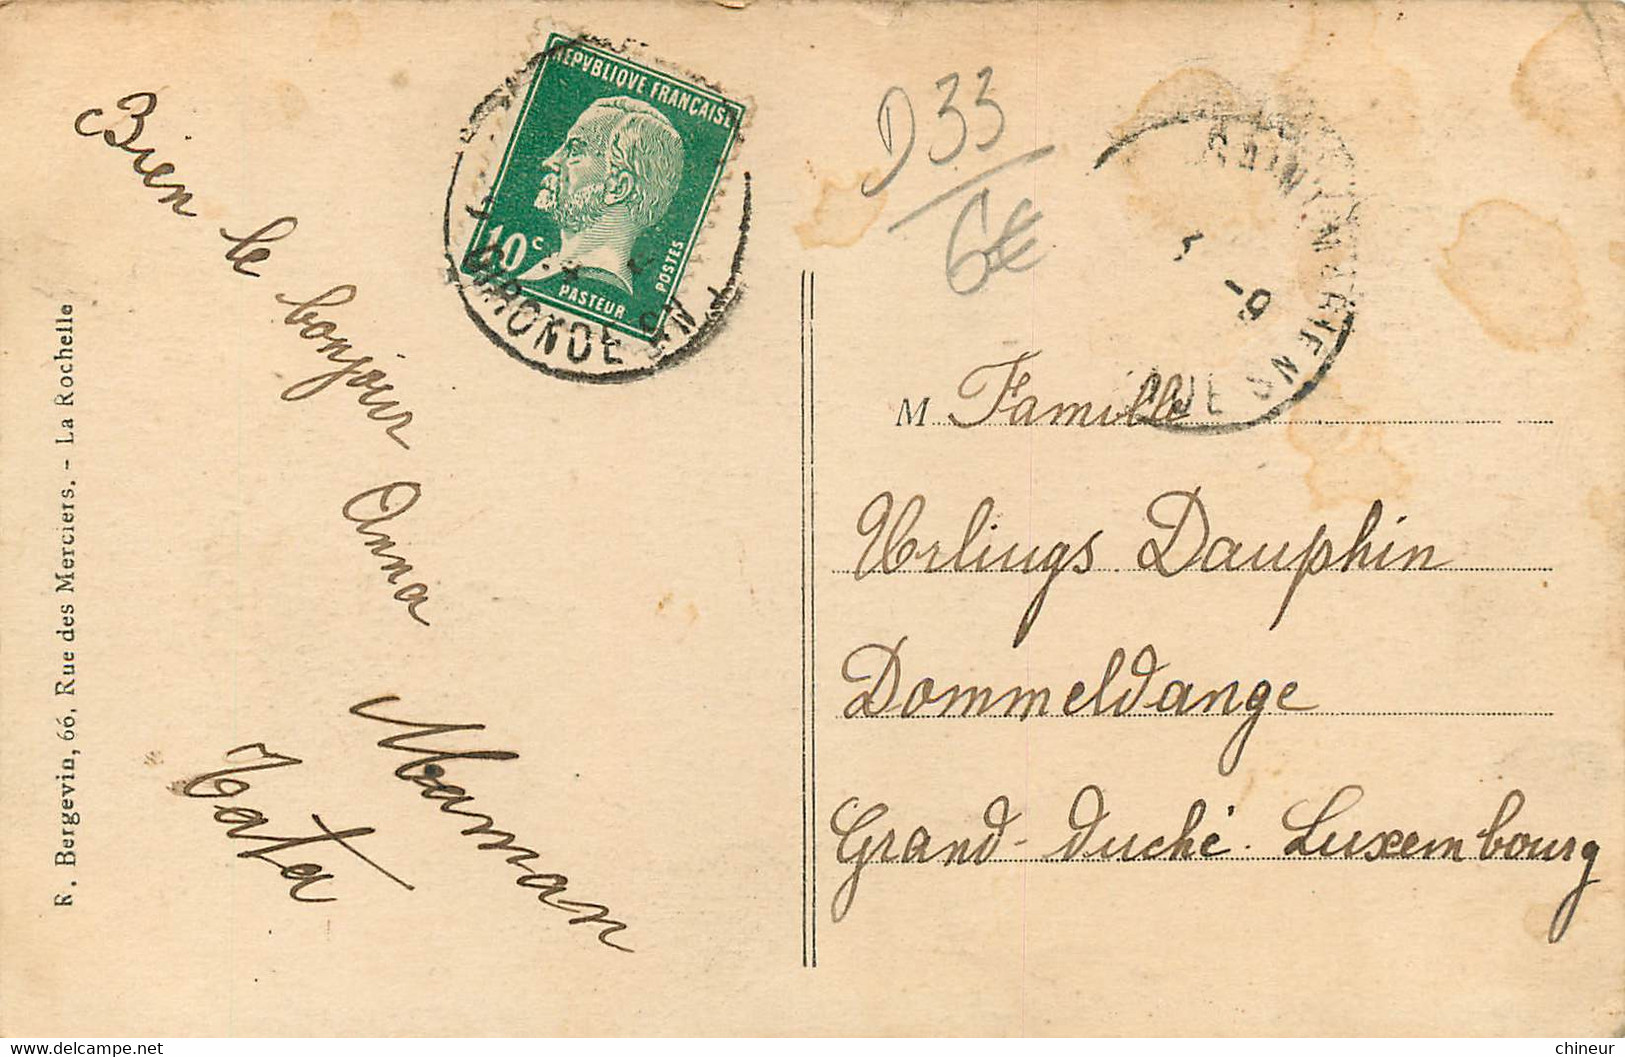 Bien le bonjour Anna
Maman
Tata
R. Bergevin, 66, Rue des Merciers. - La Rochelle
REPVBLIQVE FRANÇAISE
10 c
PASTEUR
POSTES
GIRONDE
D33
6€
M Famille
Urlings Dauphin
Dommeldange
Grand-Duché. Luxembourg
chineur